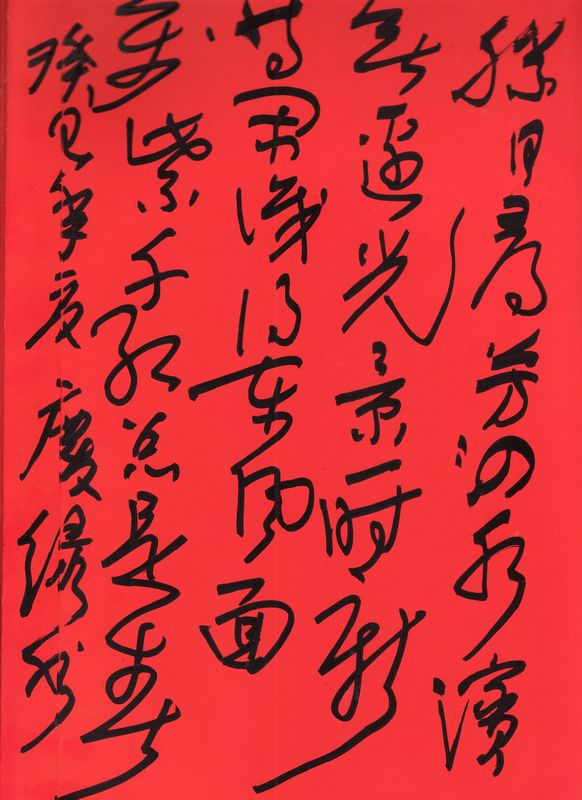 勝日尋芳泗水濱
無邊光景一時新
等閒識得東風面
萬紫千紅總是春
癸巳年夏慶